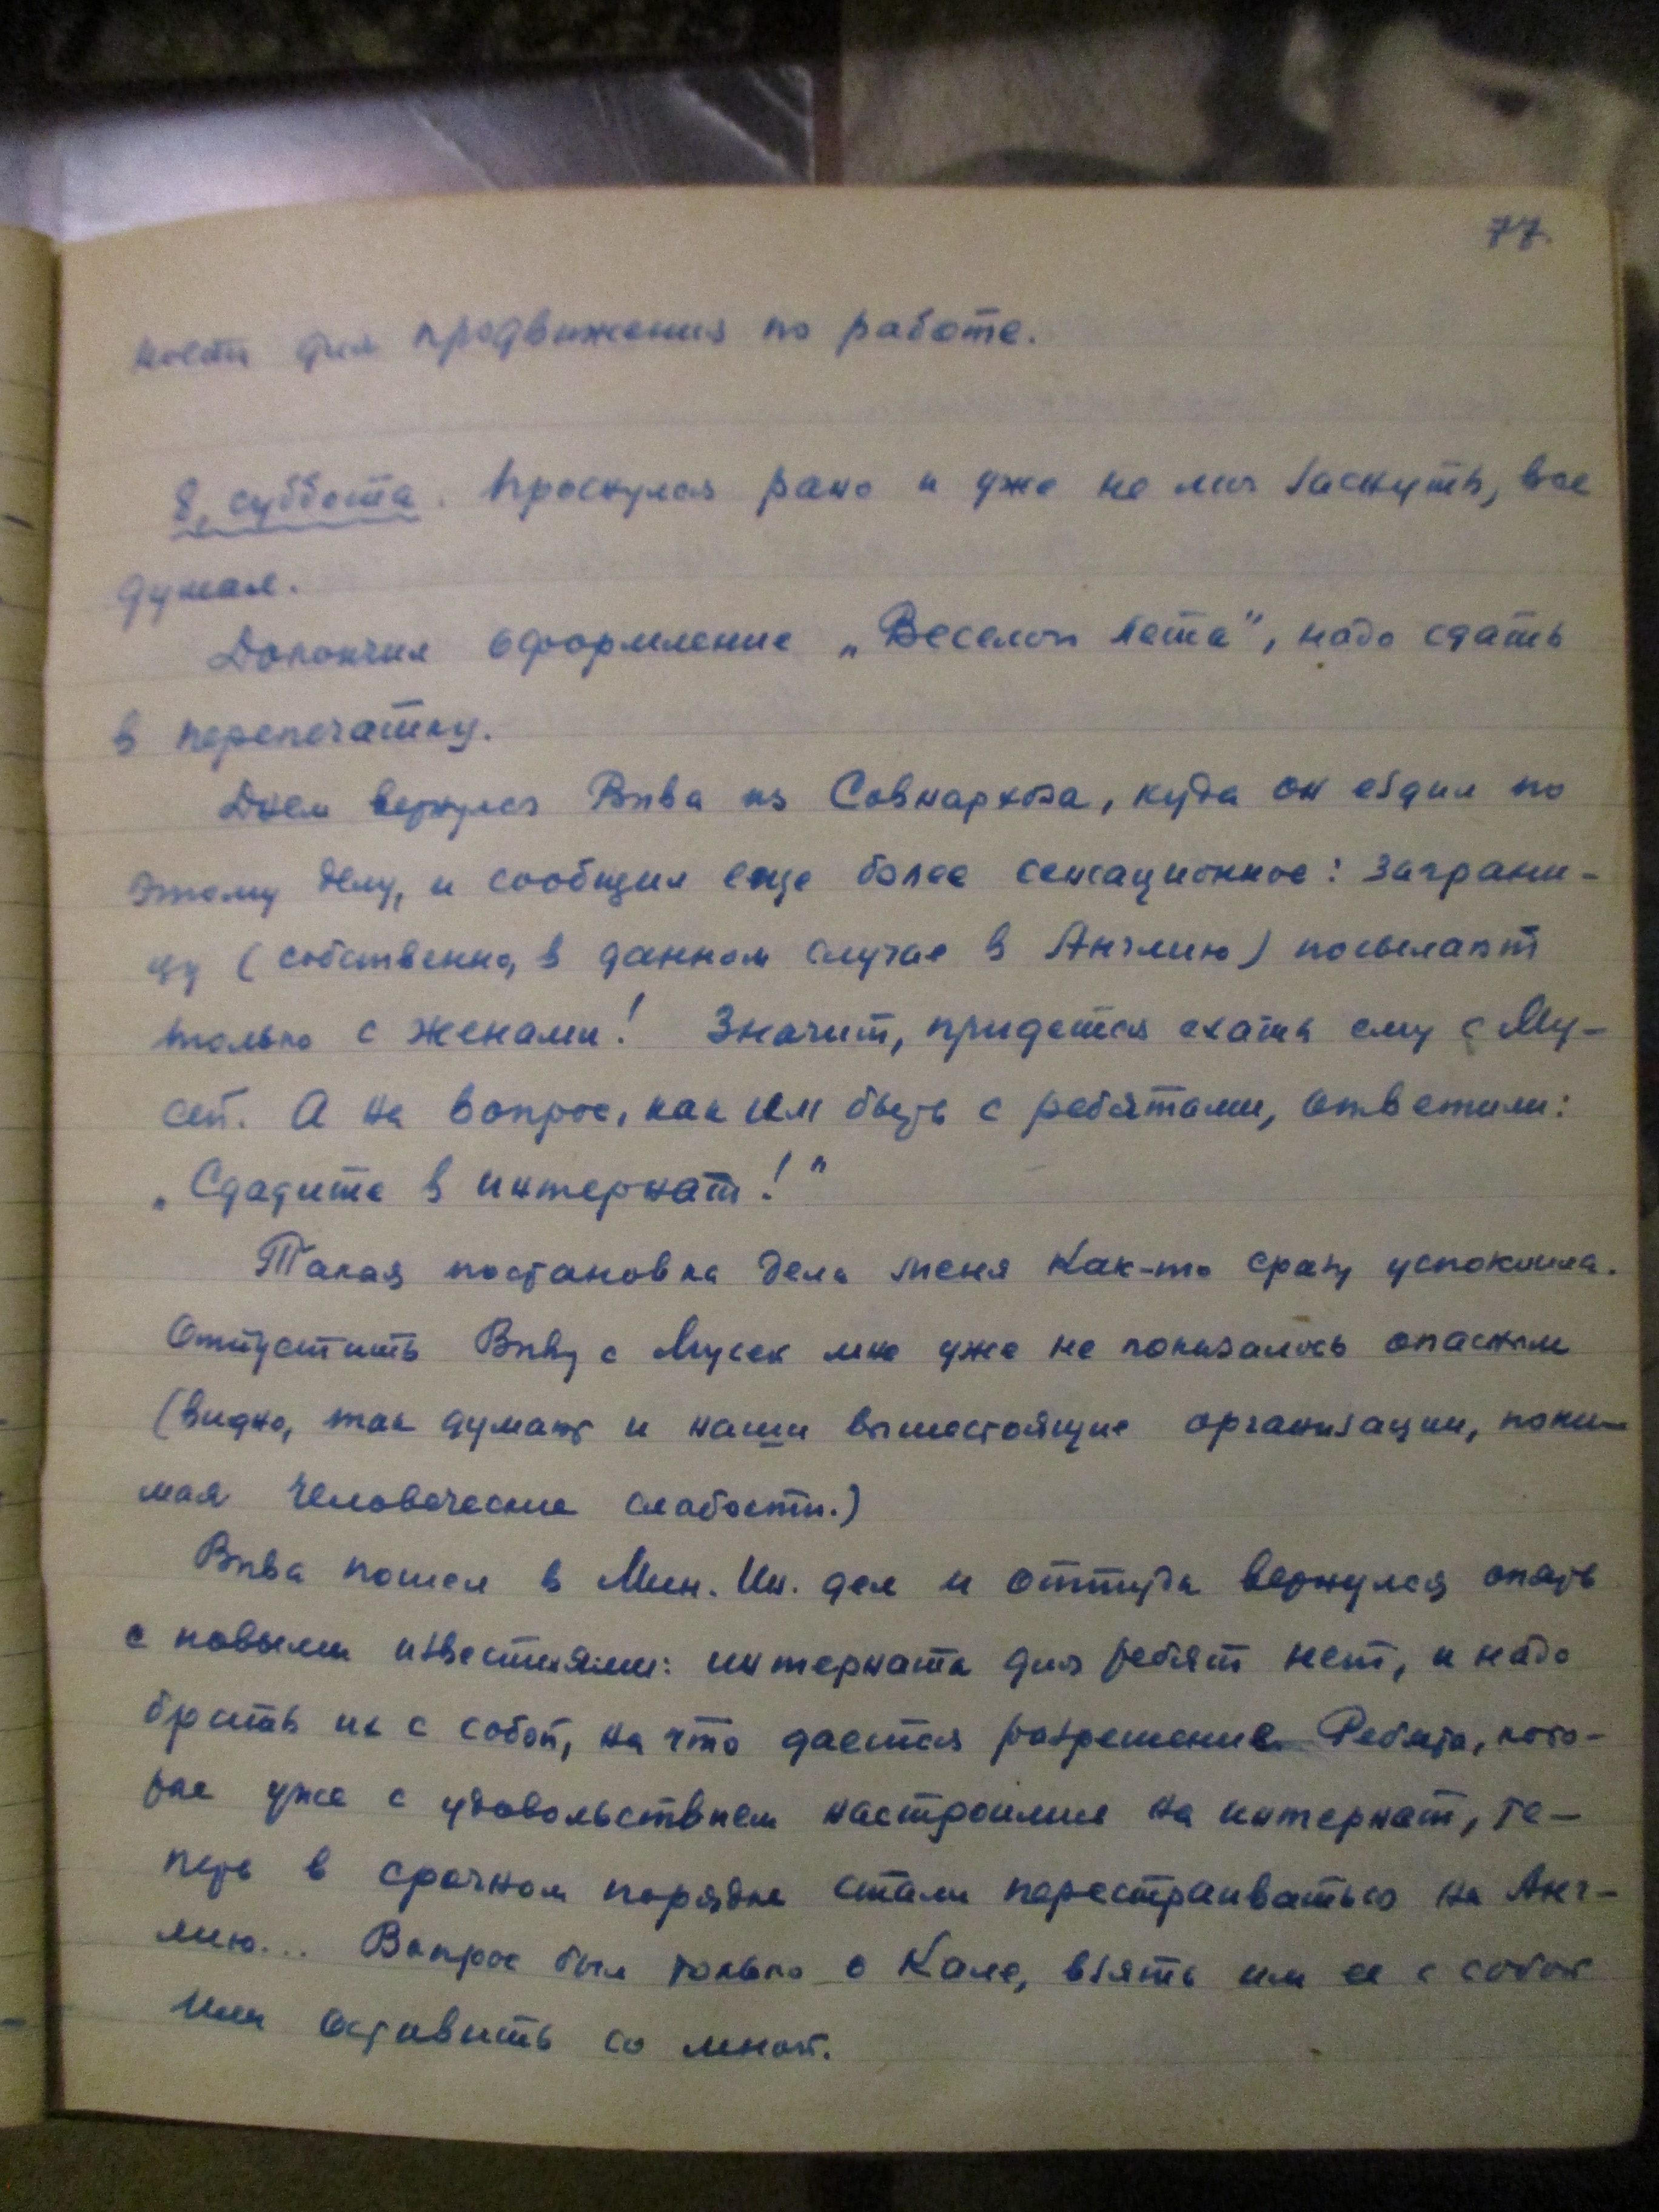 77.
ности для продвижения по работе.
8, суббота. Проснулся рано и уже не мог заснуть, все
думал.
Докончил оформление „Веселого лета", надо сдать
в перепечатку.
Днем вернулся Вива из Совнархоза, куда он ездил по
этому делу, и сообщил еще более сенсационное: заграни-
цу (собственно, в данном случае в Англию) посылают
только с женами! Значит, придется ехать ему с Му-
сей. А на вопрос, как им быть с ребятами, ответили:
„Сдадите в интернат!"
Такая постановка дела меня как-то сразу успокоила.
Отпустить Виву с Мусей мне уже не показалось опасным
(видно, так думают и наши вышестоящие организации, пони-
мая человеческие слабости.)
Вива пошел в Мин. Ин. дел и оттуда вернулся опять
с новыми известиями: интерната для ребят нет, и надо
брать их с собой, на что дается разрешение. Ребята, кото-
рые уже с удовольствием настроились на интернат, те-
перь в срочном порядке стали перестраиваться на Анг-
лию... Вопрос был только о Кале, взять им ее с собой
или оставить со мной.